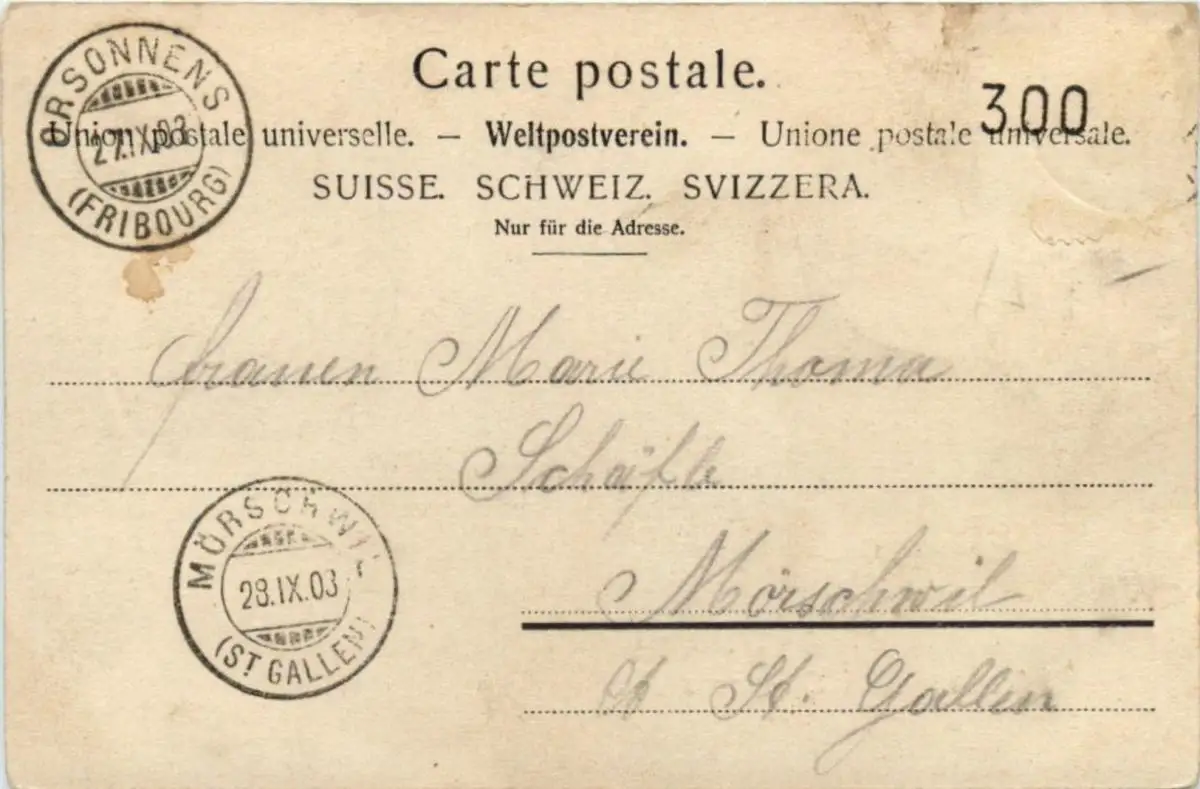 Carte postale.
300
ORSONNENS
27.IX.03
(FRIBOURG)
Union postale universelle. — Weltpostverein. — Unione postale universale.
SUISSE. SCHWEIZ. SVIZZERA.
Nur für die Adresse.
frauen Marie Thoma
Schäfle
MÖRSCHWIL
28.IX.03
(ST GALLEN)
Mörschwil
St. Gallen